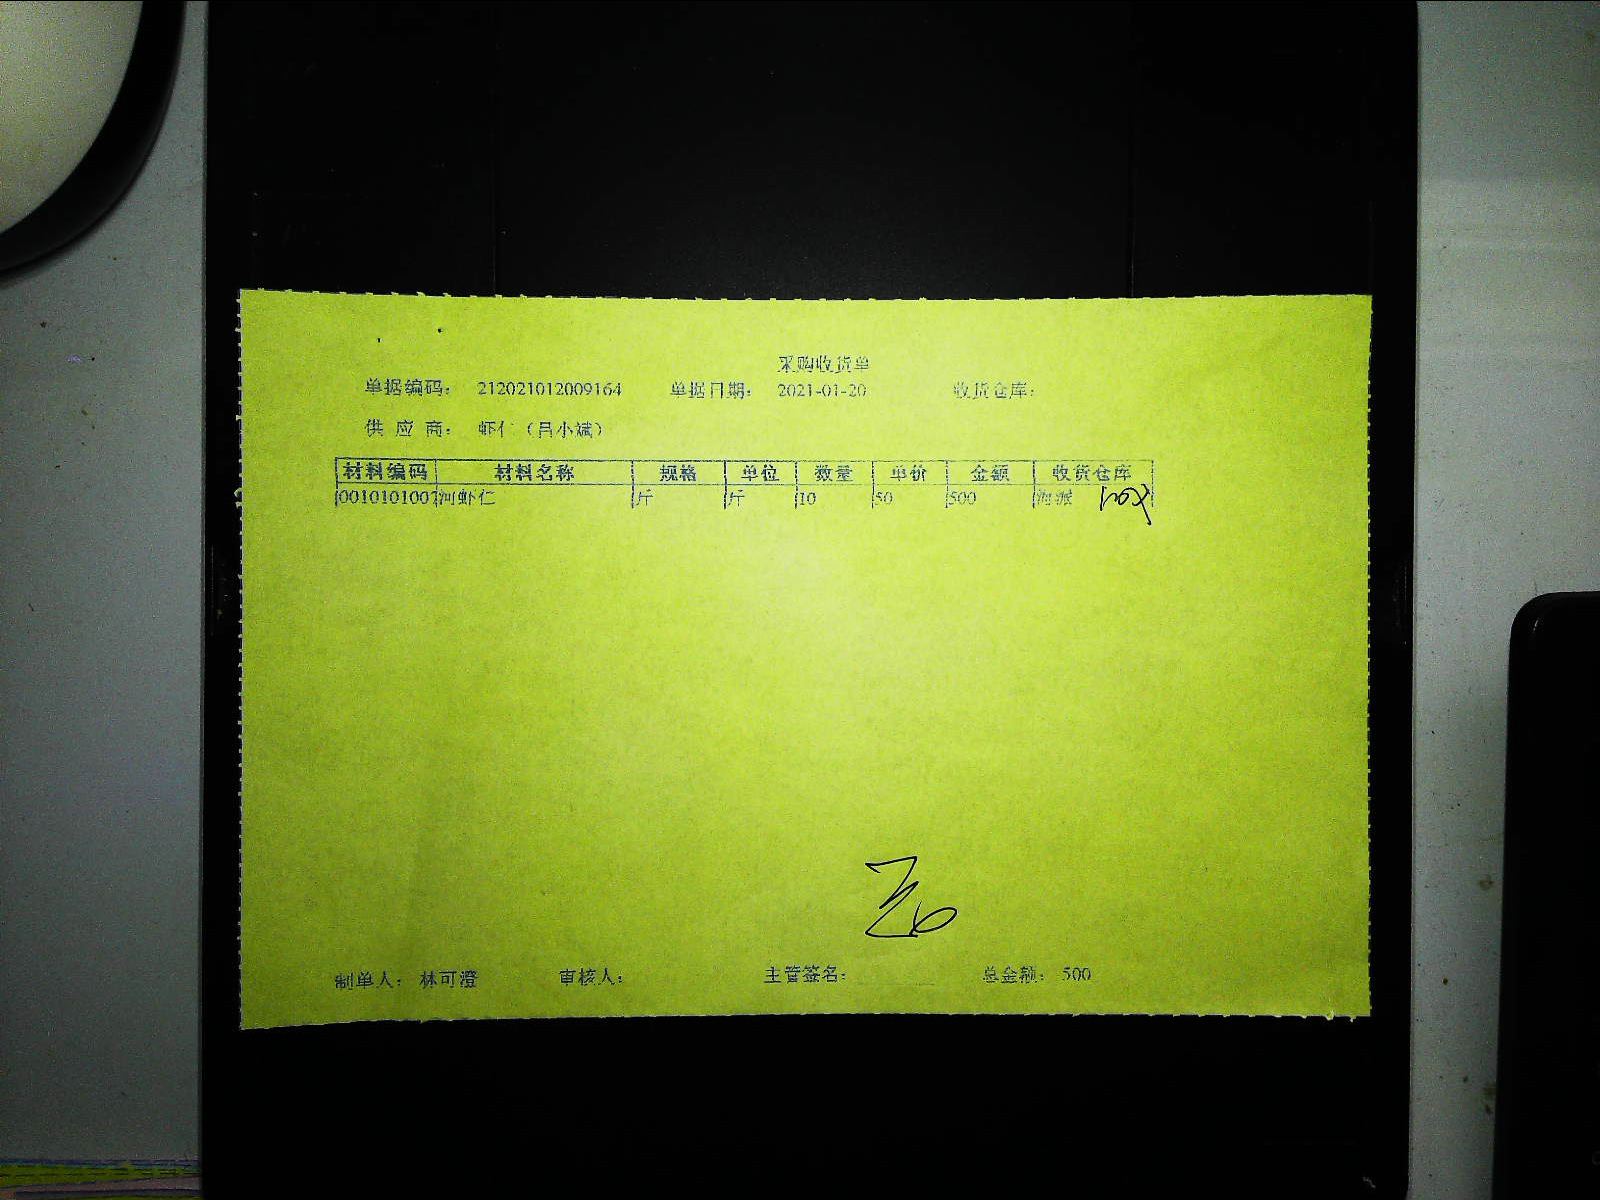 采购收货单
单据编码： 212021012009164 单据日期： 2021-01-20 收货仓库：
供 应 商： 虾仁（吕小斌）
材料编码 材料名称 规格 单位 数量 单价 金额 收货仓库
0010101007 河虾仁 斤 斤 10 50 500 海派
制单人： 林可澄 审核人： 主管签名： 总金额： 500